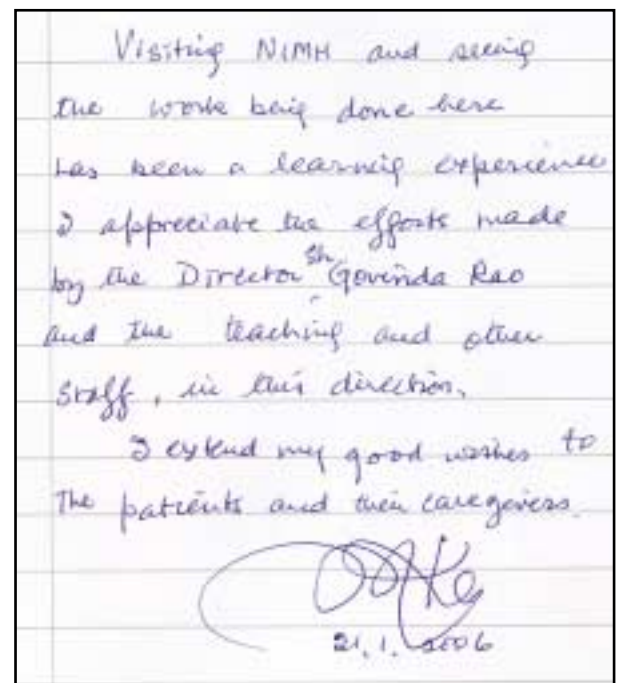 Visiting NIMH and seeing
the work being done here
has been a learning experience
I appreciate the efforts made
by the Director Sh Govinda Rao
and the teaching and other
staff, in this direction.
I extend my good wishes to
The patients and their caregivers.
21.1.2006